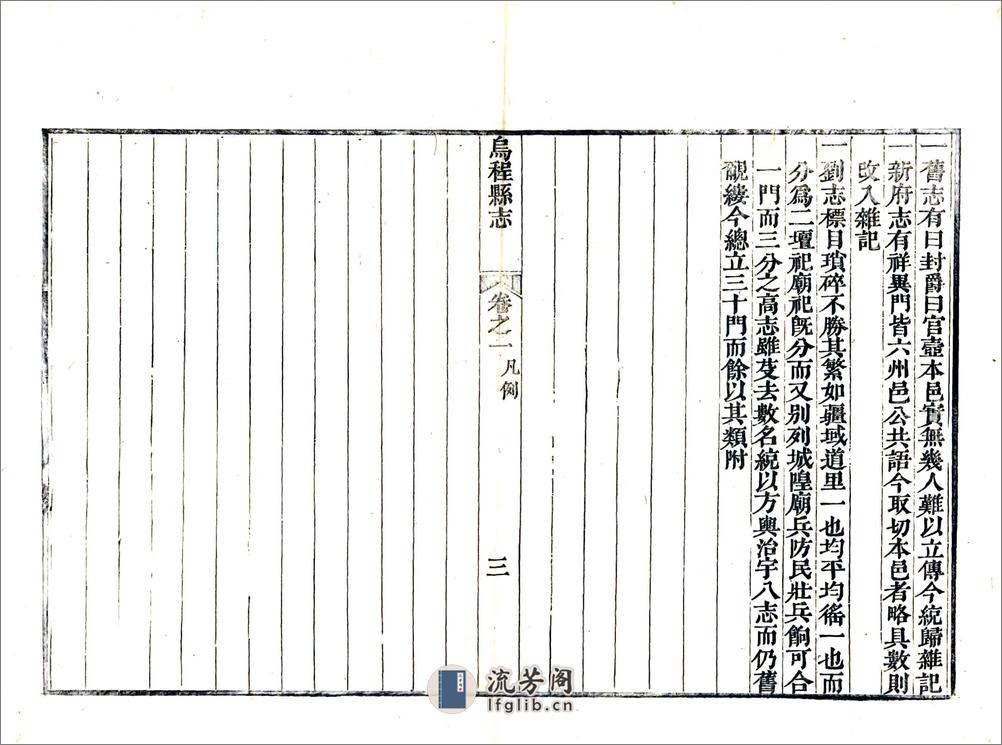 一舊志有曰封爵曰官壺本邑實無幾人難以立傳今統歸雜記
一新府志有祥異門皆六州邑公共語今取切本邑者略具數則
改入雜記
一劉志標目瑣碎不勝其繁如疆域道里一也均平均徭一也而
分爲二壇祀廟祀旣分而又別列城隍廟兵防民壯兵餉可合
一門而三分之高志雖芟去數名統以方輿治宇八志而仍舊
覼縷今總立三十門而餘以其類附
烏程縣志
卷之一
凡例
三
流芳阁
lfglib.cn